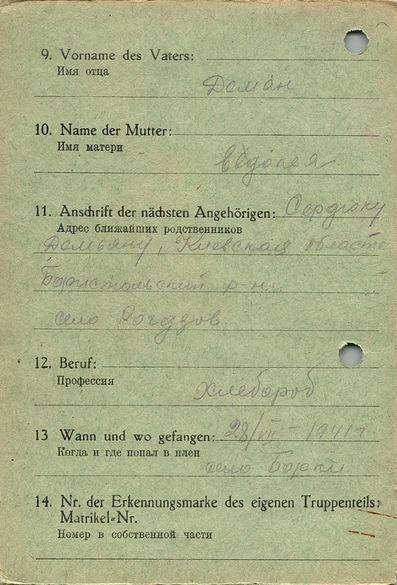 9. Vorname des Vaters:
Имя отца
Деман
10. Name der Mutter:
Имя матери
Евдокея
11. Anschrift der nächsten Angehörigen: Сердюку
Адрес ближайших родственников
Демьяну, Киевская область
Бориспольский р-н
село
12. Beruf:
Профессия
Хлебороб
13 Wann und wo gefangen: 28/VII – 1941 г
Когда и где попал в плен
село Борки
14. Nr. der Erkennungsmarke des eigenen Truppenteils:
Matrikel-Nr.
Номер в собственной части